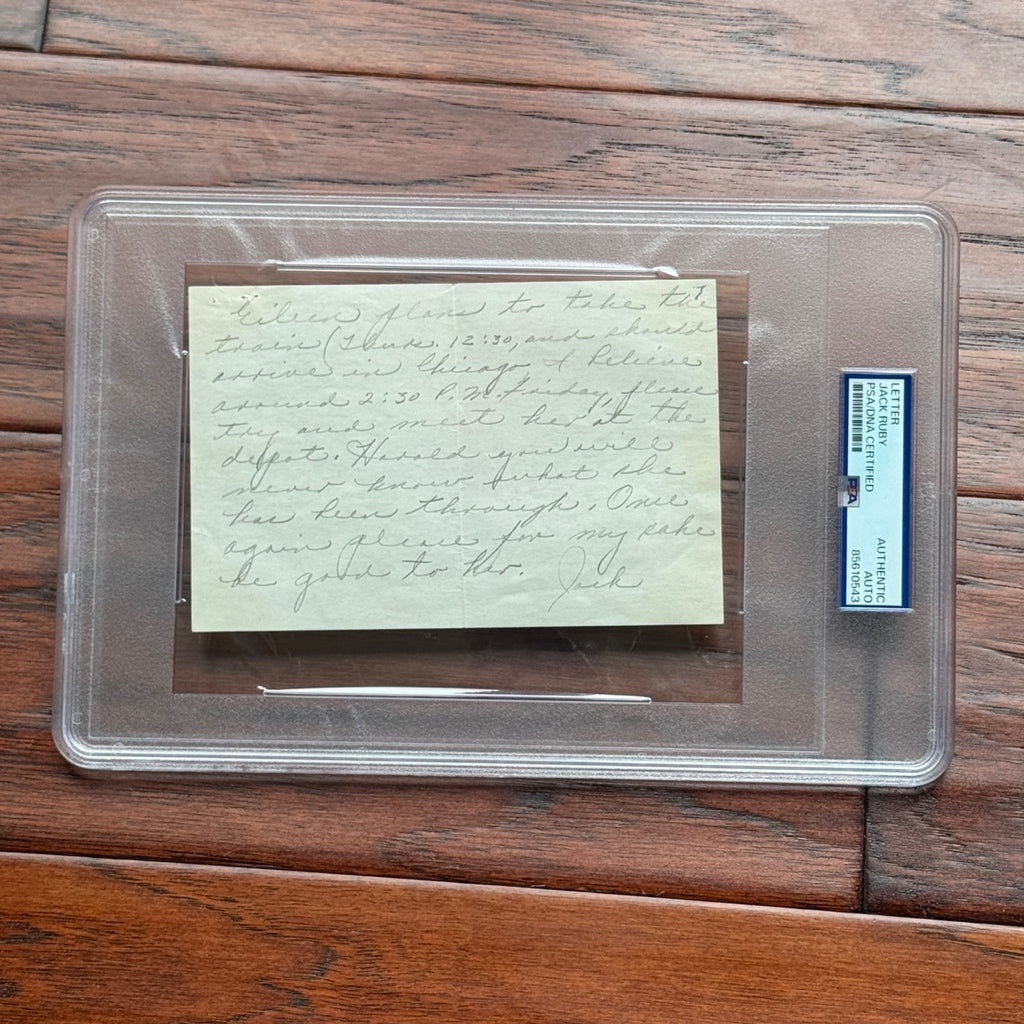 7
Eileen plans to take the
train (Thurs. 12:30, and should
arrive in Chicago, I believe
around 2:30 P.M. Friday, please
try and meet her at the
depot. Harold you will
never know what she
has been through. Once
again please for my sake
be good to her. Jack
LETTER
JACK RUBY
PSA/DNA CERTIFIED
PSA
AUTHENTIC
AUTO
85610543